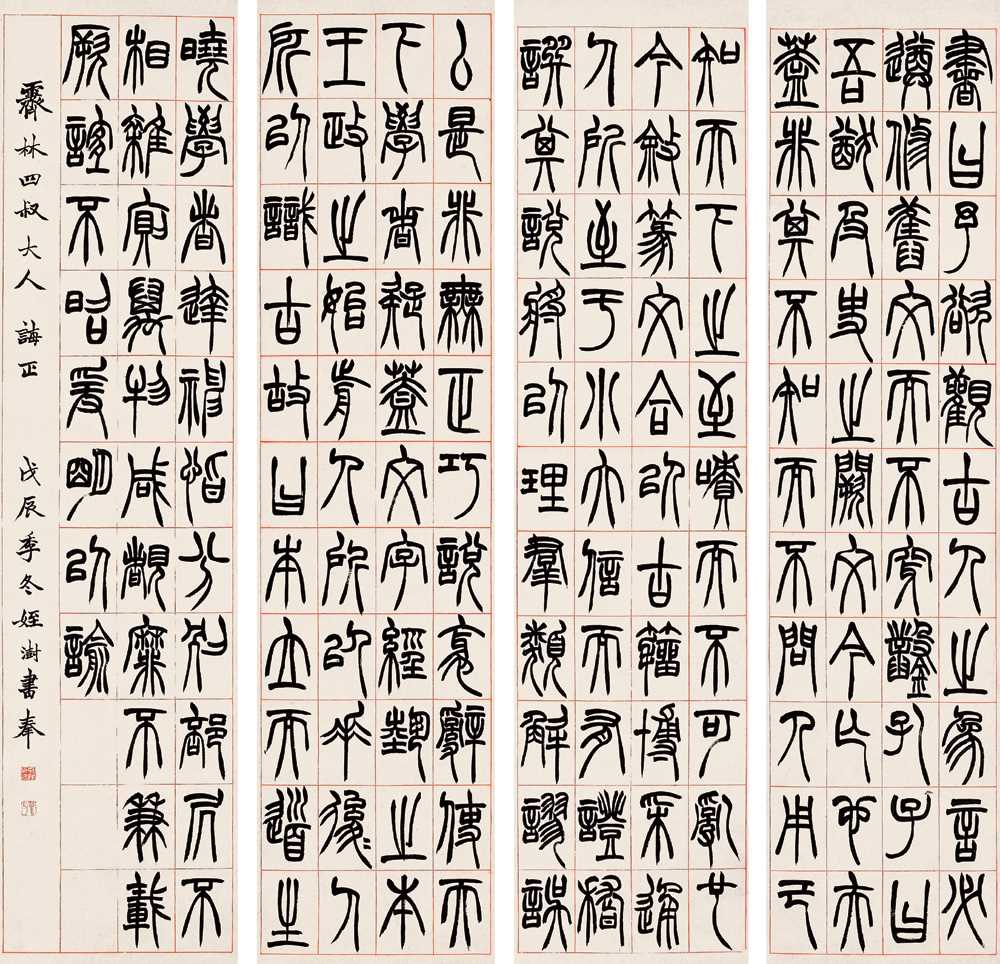 書曰予欲觀古人之象言必
遵修舊文而不穿鑿孔子曰
吾猶及史之闕文今亡也夫
蓋非其不知而不問人用己
知天下之至嘖而不可亂也
今敘篆文合以古籀博采通
人所至于小大信而有證稽
譔其說將以理羣類解謬誤
厶是非無正巧說衺辭使天
下學者疑蓋文字經藝之本
王政之始前人所以垂後人
所以識古故曰本立而道生
曉學者達神恉分別部居不
相雜廁萬物咸覩靡不兼載
厥誼不昭爰明以諭
霽林四叔大人 誨正 戊辰季冬姪澍書奉